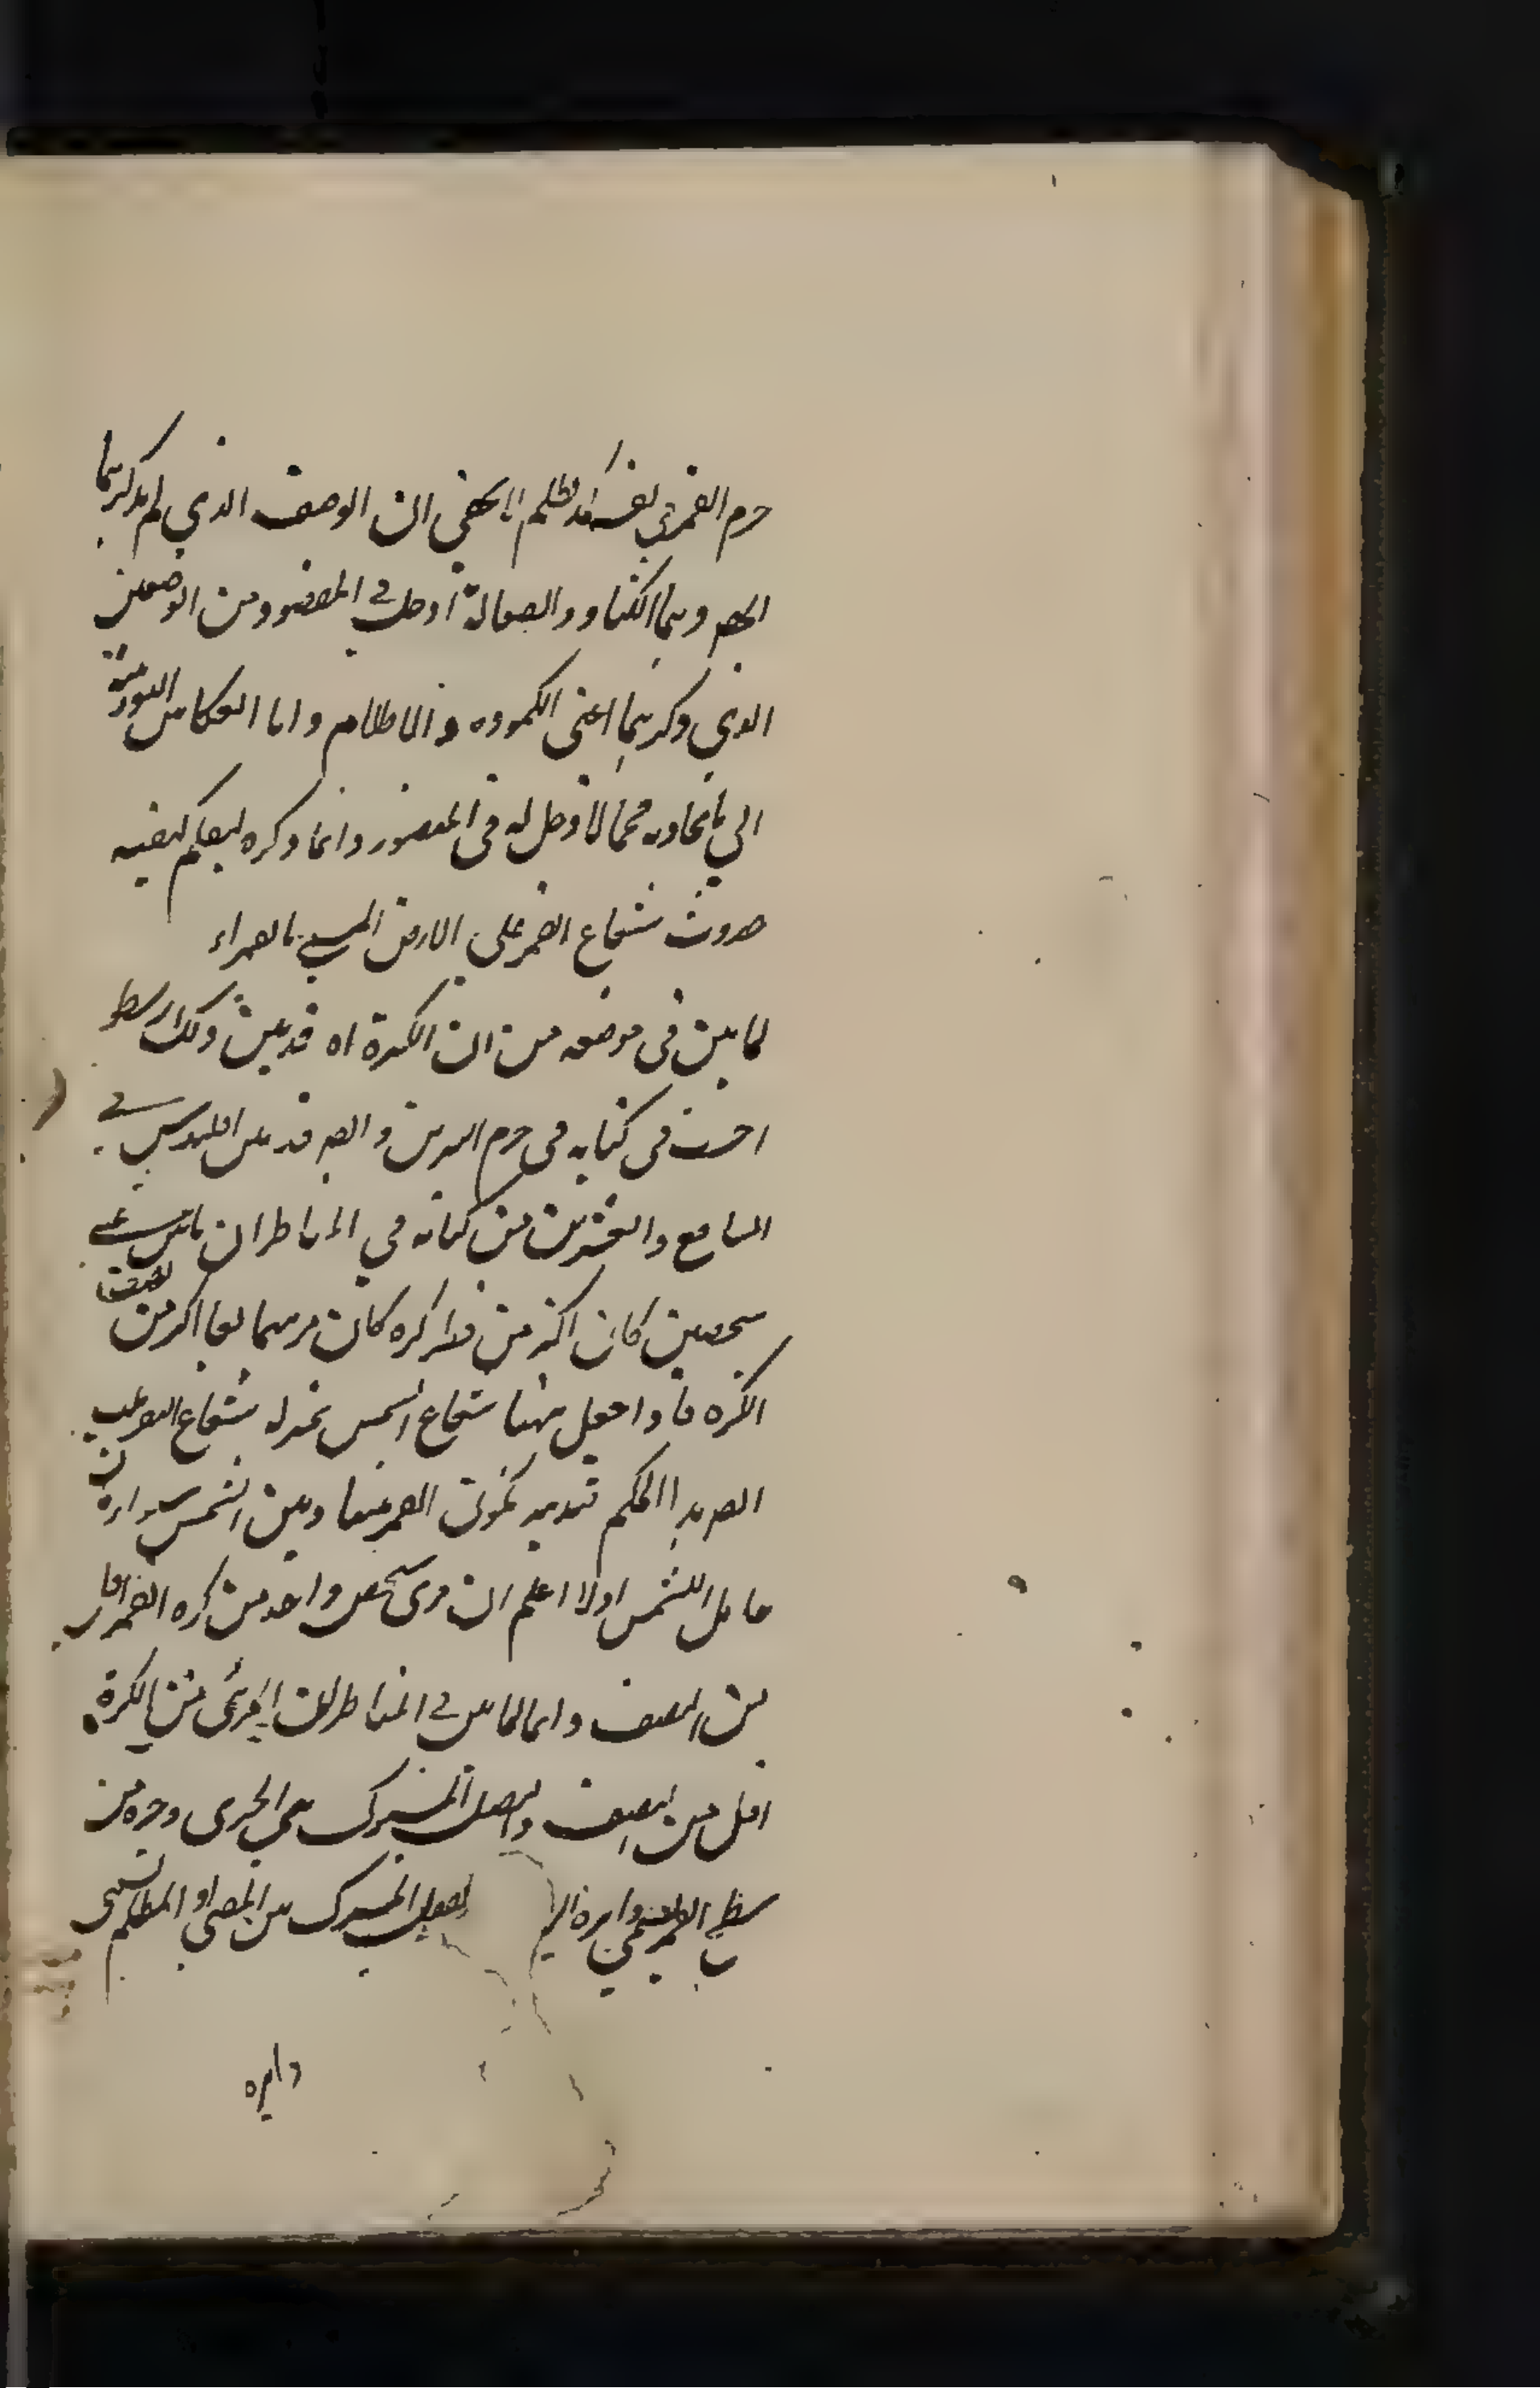 جرم القمر في نفسه كمد مظلم لا يخفى ان الوصف الذي لم يذكرهما
الجصم وهما الكثافة والصقالة ادخل في المقصود من الوصفين
الذي ذكرهما اعني الكمودة والاظلام واما انعكاس النور منه
الى ما يحاذيه فمما لا دخل له في المقصود وانما ذكره ليعلم كيفية
حدوث شعاع القمر على الارض المسمى بالقمراء
لما بين في موضعه من ان الكرة اه قد بين ذلك ارسطو
اخس في كتابه في جرم النيرين وايضا قد بين اقليدس في
السابع والعشرين من كتابه في المناظر ان ما بين عيني
شخصين كان اكثر من قطر كره كان مرئيهما معا اكثر من نصف
الكره فاذا جعل ههنا شعاع الشمس بمنزلة شعاع البصر علم
ايضا هذا الحكم قد يكون القمر بيننا وبين الشمس
حائل للشمس اولا اعلم ان مرئى شخص واحد من كره القمر اقل
من النصف دائما لما بين في المناظر ان المرئي من الكرة
اقل من النصف والفصل المشترك بين المرئي وغيره من
سطح القمر يسمى دايرة الرؤية والفصل المشترك بين المضي والمظلم يسمى
دايره